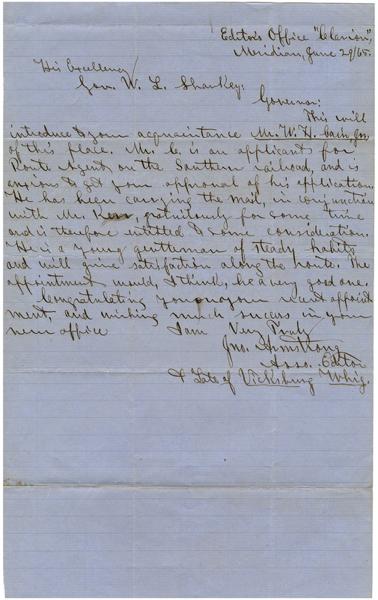 Editor's Office "Clarion",
Meridian, June 29/65.
His Excellency
Gov. W. L. Sharkey.
Governor:
This will
introduce to your acquaintance Mr. W. H.
of this place. Mr. C. is an applicant for
Route Agent, on the Southern railroad, and is
anxious to get your approval of his application.
He has been carrying the mail, in conjunction
with Mr. Kerr, gratuitously for some time
and is therefore entitled to some consideration.
He is a young gentleman of steady habits
and will give satisfaction along the route. The
appointment would, I think, be a very good one.
Congratulating you upon your recent appoint
ment, and wishing much success in your
new office I am Very Truly
Jno. Armstrong
Asso. Editor
& Late of Vicksburg Whig.